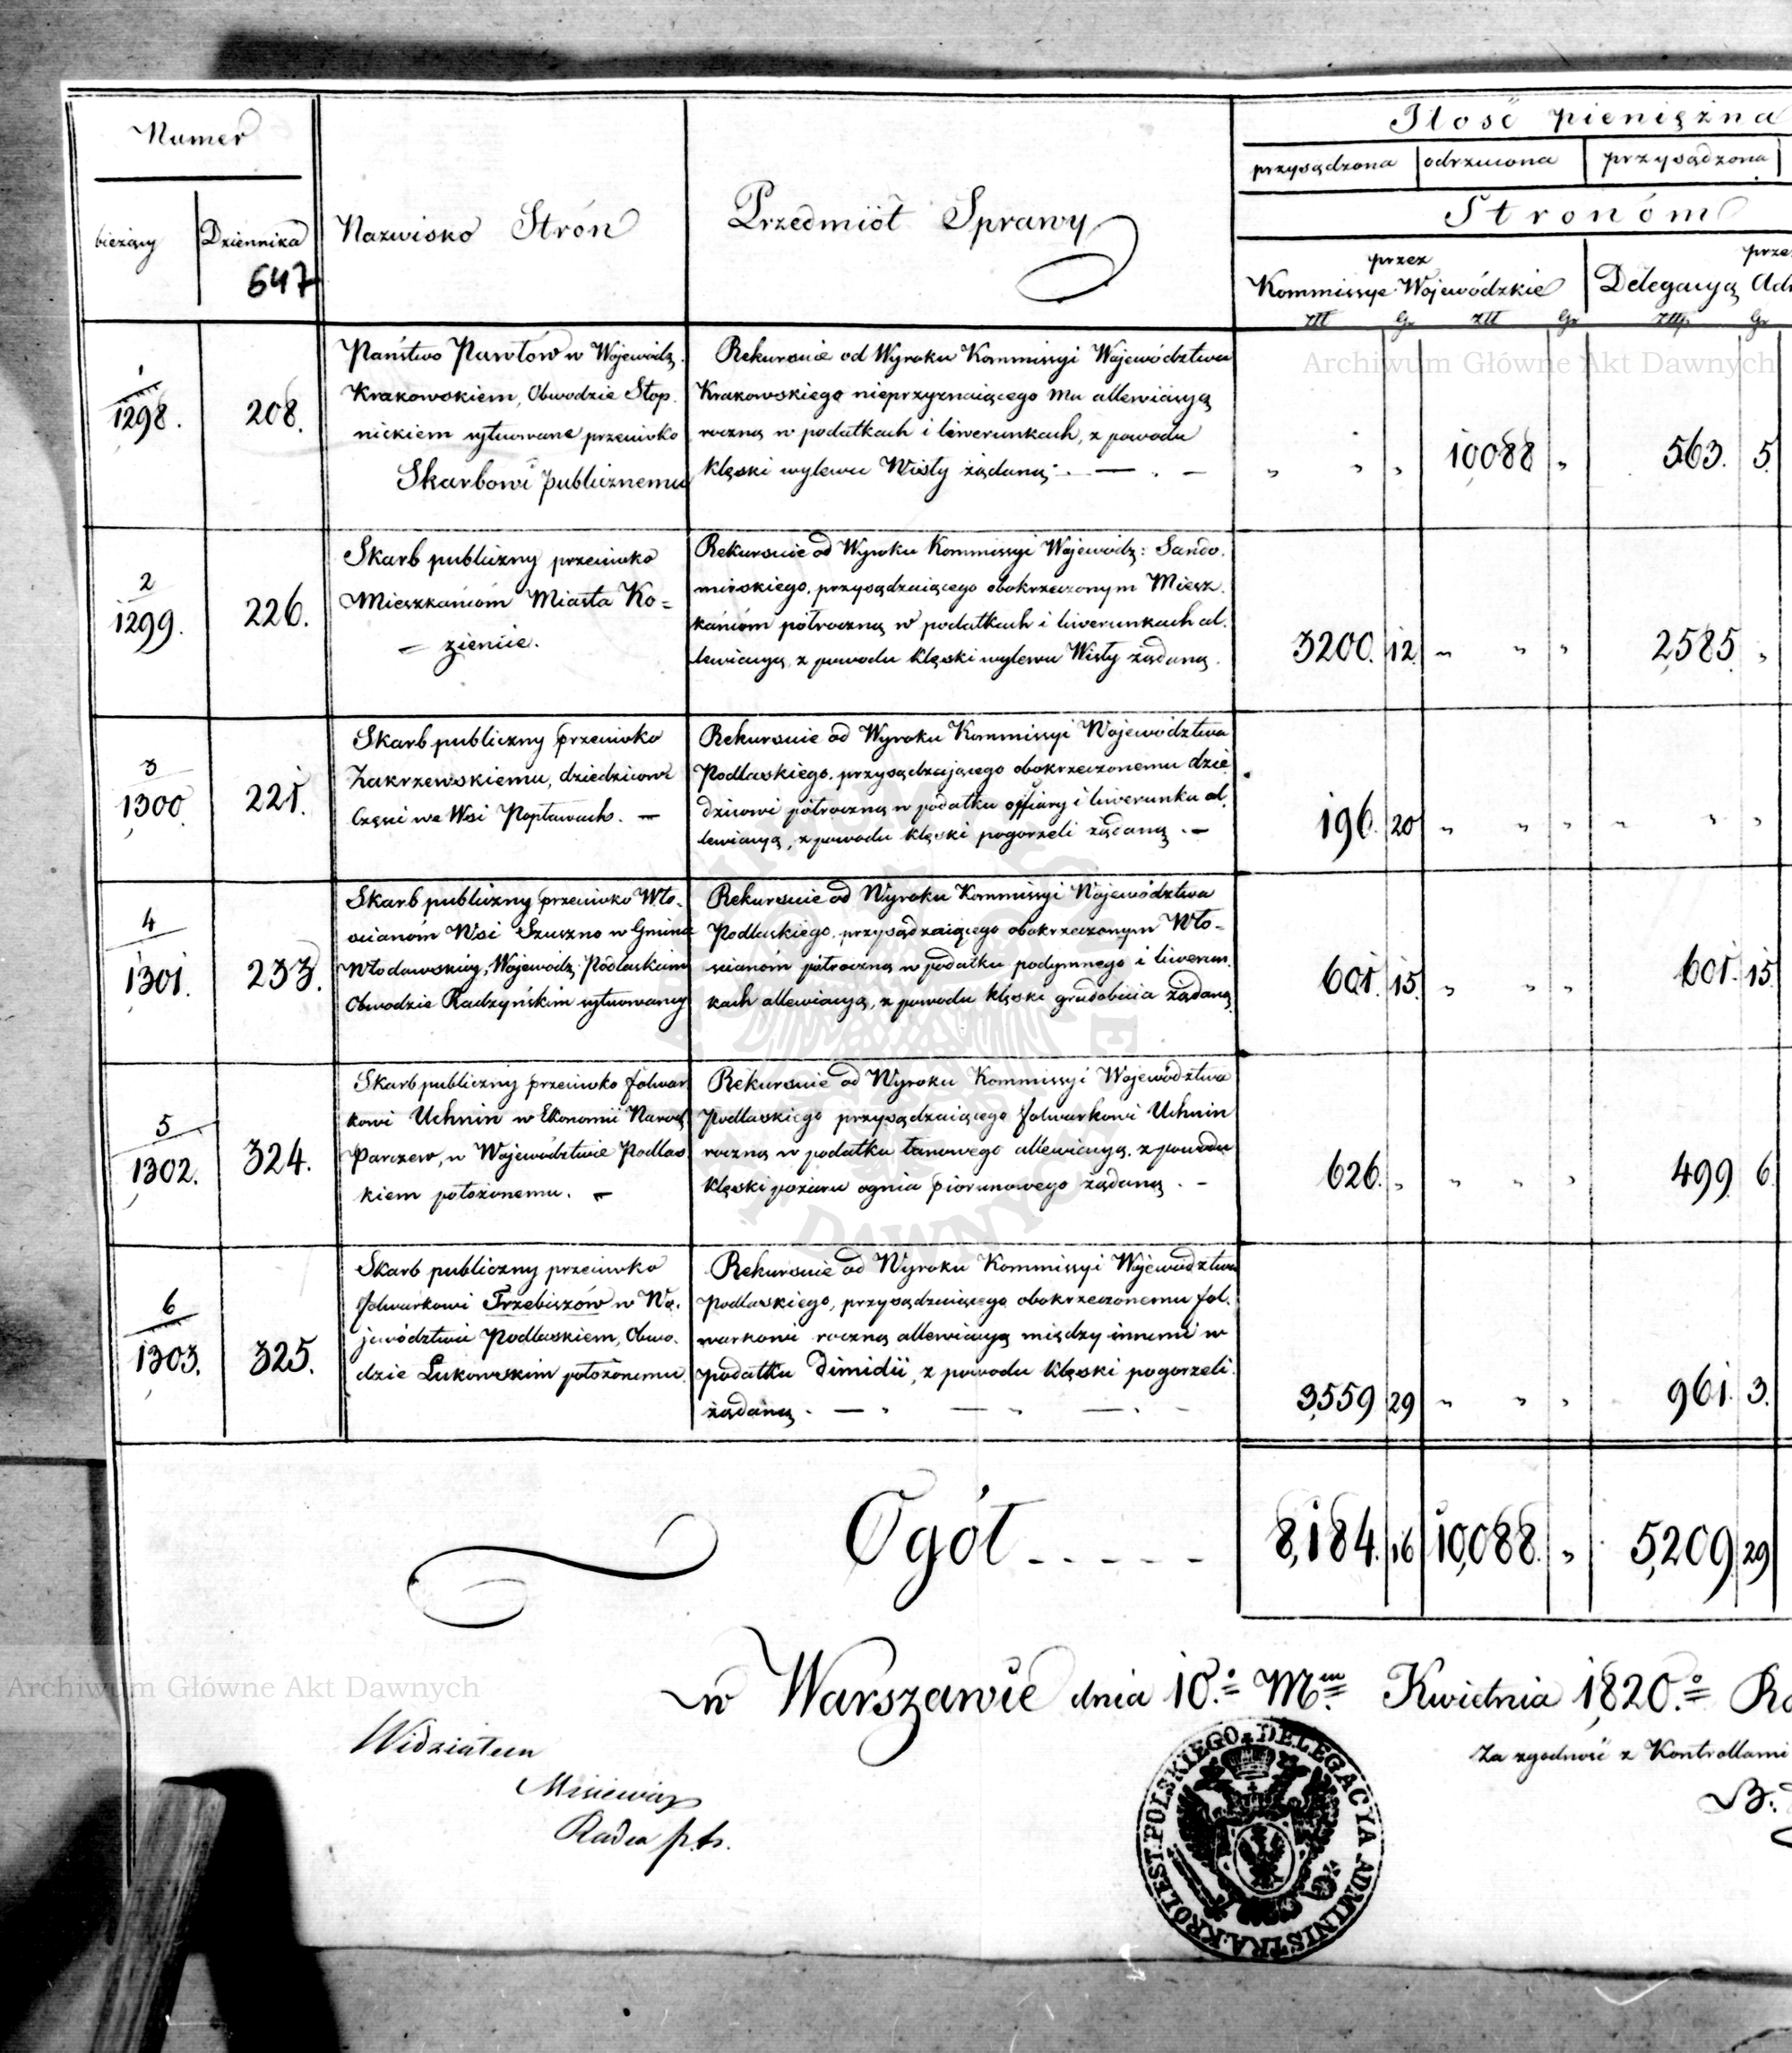 Numer
bieżący
Dziennika
647
Nazwisko Strón
Przedmiöt Sprawy
Ilość pieniężna
przysądzona
odrzucona
przysądzona
Stronóm
przez
Kommissye Wojewódzkie
prze
Delegacyą Adm
Złł Gr Złł Gr Złp. Gr
1
1298.
208.
Państwo Pawłów w Wojewódz.
Krakowskiem, Obwodzie Stop.
nickiem sytuowane przeciwko
Skarbowi publicznemu
Rekursuie od Wyroku Kommissyi Województwa
Krakowskiego nieprzyznaiącego mu allewiacyą
roczną w podatkach i liwerunkach, z powodu
klęski wylewu Wisły żądaną.
" " " 10088 " 563. 5.
2
1299.
226.
Skarb publiczny przeciwko
Mieszkańcóm Miasta Ko=
zienic.
Rekursuie od Wyroku Kommissyi Wojewódz: Sando.
mirskiego, przysądzaiącego obokrzeczonym Miesz.
kańcóm półroczną w podatkach i liwerunkach al.
lewiacyą, z powodu klęski wylewu Wisły żądaną.
3200. 12. " " " 2,585. "
3
1300.
221.
Skarb publiczny przeciwko
Zakrzewskiemu, dziedzicowi
Części we Wsi Popławach. —
Rekursuie od Wyroku Kommissyi Województwa
Podlaskiego, przysądzającego obokrzeczonemu dzie
dzicowi półroczną w podatku offiary i liwerunku al.
lewiacyą, z powodu klęski pogorzeli żądaną. —
196. 20 " " " " " "
4
1301.
233.
Skarb publiczny przeciwko Wło.
ścianóm Wsi Szuszno w Gminie
Włodawskiey, Wojewódz. Podlaskim
Obwodzie Radzyńskim sytuowaney
Rekursuie od Wyroku Kommissyi Województwa
Podlaskiego, przysądzaiącego obokrzeczonym Wło-
ścianóm półroczną w podatku podymnego i liwerun.
kach allewiacyą, z powodu klęski gradobicia żądaną
601. 15. " " " 601. 15.
5
1302.
324.
Skarb publiczny przeciwko folwar
kowi Uchnin w Ekonomii Narod.
Parczew, w Województwie Podlas
kiem położonemu. —
Rekursuie od Wyroku Kommissyi Województwa
Podlaskiego przysądzaiącego folwarkowi Uchnin
roczną w podatku łanowego allewiacyą, z powodu
klęski pożaru ognia piorunowego żądaną. —
626. " " " " 499. 6.
6
1303.
325.
Skarb publiczny przeciwko
folwarkowi Trzebiszów w Wo.
jewództwie Podlaskiem, Obwo.
dzie Łukowskim położonemu.
Rekursuie od Wyroku Kommissyi Województwa
Podlaskiego, przysądzaiącego obokrzeczonemu fol.
warkowi roczną allewiacyą między innemi w
podatku Dimidii, z powodu klęski pogorzeli
żądaną. — " — " — " —
3,559 29 " " " 961. 3.
Ogół - - - - -
8,184. 16 10,088. " 5,209 29
w Warszawie dnia 10.º Mca Kwietnia 1820.º Ro
Za zgodność z Kontrollami
B.
Widziałem
Misiewicz
Radca
KRÓLEST: POLSKIEGO DELEGACYA ADMINISTRA:
Archiwum Główne Akt Dawnych
Archiwum Główne Akt Dawnych